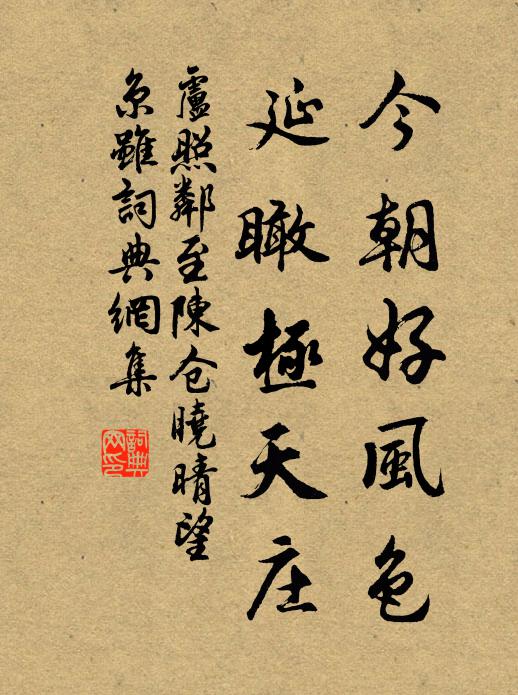 今朝好風色
延瞰極天庄
盧照鄰至陳仓曉晴望
京雖詞典網集
詞典网印